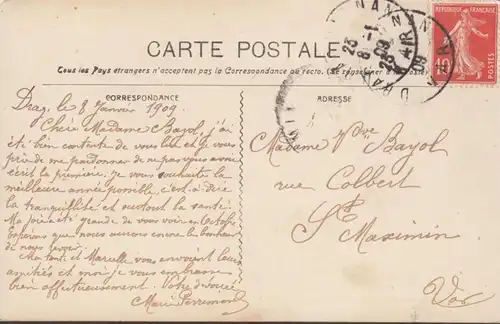 CARTE POSTALE
Tous les Pays étrangers n'acceptent pas la Correspondance au recto. (Se renseigner à la Poste)
CORRESPONDANCE
ADRESSE
REPUBLIQUE FRANÇAISE
10
POSTES
Drag. le 8 Janvier 1909
Chère Madame Bayol, j'ai
été bien contente de vous lire et je vous
prie de me pardonner de ne pas vous avoir
écrit la première. je vous souhaite la
meilleure année possible, c'est-à-dire
la tranquillité et surtout la santé.
Ma joie a été grande de vous voir en Octobre
Espérons que nous aurons encore le bonheur
de nous revoir.
Ma tante et Marcelle vous envoient leurs
amitiés et moi je vous embrasse
bien affectueusement. Votre dévouée
Marie
Madame Vve Bayol
rue Colbert
St Maximin
Var